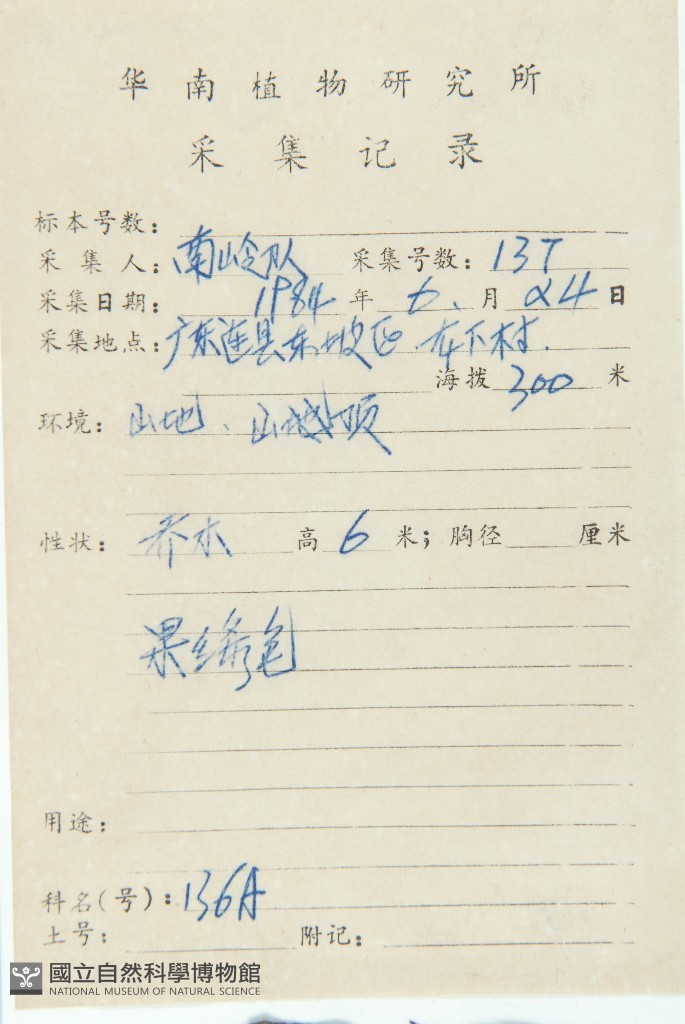 华南植物研究所
采集记录
标本号数：
采集人：南岭队 采集号数：137
采集日期：1984年6、月24日
采集地点：广东连县东坡区.龙下村.
海拨300米
环境：山地、山坡顶
性状：乔木 高6米；胸径 厘米
果绿色
用途：
科名(号)：136A
土号： 附记：
國立自然科學博物館
NATIONAL MUSEUM OF NATURAL SCIENCE